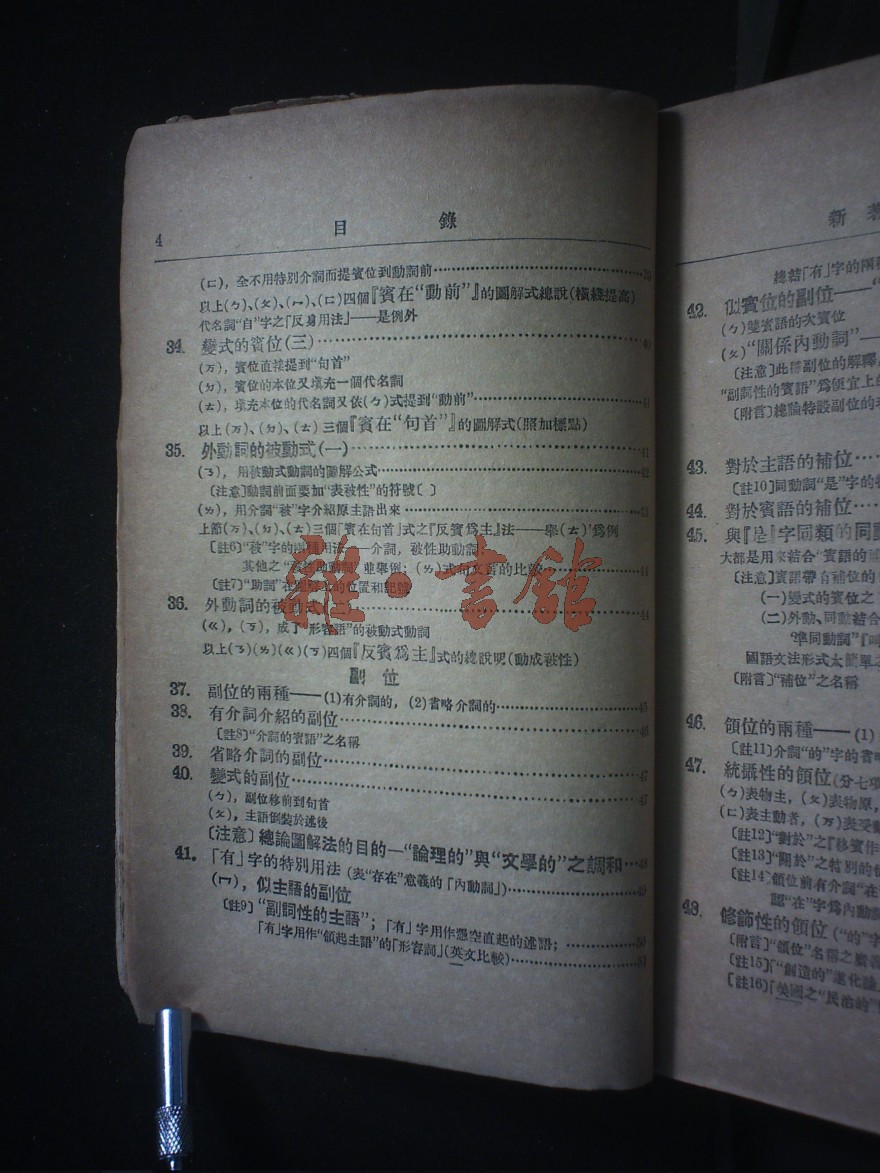 4 目 錄
(ㄈ)，全不用特別介詞而提賓位到動詞前
以上(ㄅ)、(ㄆ)、(ㄇ)、(ㄈ)四個『賓在“動前”』的圖解式總說(橫綫提高)
代名詞“自”字之「反身用法」——是例外
34. 變式的賓位(三)
(ㄪ)，賓位直接提到“句首”
(ㄉ)，賓位的本位又填充一個代名詞
(ㄊ)，填充本位的代名詞又依(ㄅ)式提到“動前” 41
以上(ㄪ)、(ㄉ)、(ㄊ)三個『賓在“句首”』的圖解式(照加標點)
35. 外動詞的被動式(一) 41
(ㄋ)，用被動式動詞的圖解公式 42
〔注意〕動詞前面要加“表被性”的符號〔 〕
(ㄌ)，用介詞“被”字介紹原主語出來
上節(ㄪ)、(ㄉ)、(ㄊ)三個「賓在句首」式之『反賓爲主』法——舉(ㄊ)’爲例
〔註6〕“被”字的兩種用法——介詞，被性助動詞；
其他之 並舉例；(ㄌ)式 44
〔註7〕“助詞”在 的位置和
36. 外動詞的被動式 44
(ㄍ)，(ㄎ)，成了“形容語”的被動式動詞
以上(ㄋ)(ㄌ)(ㄍ)(ㄎ)四個『反賓爲主』式的總說明(動成被性)
副 位
37. 副位的兩種——(1)有介詞的，(2)省略介詞的 45
38. 有介詞介紹的副位 46
〔註8〕“介詞的賓語”之名稱
39. 省略介詞的副位 47
40. 變式的副位 47
(ㄅ)，副位移前到句首
(ㄆ)，主語倒裝於述後
〔注意〕總論圖解法的目的—“論理的”與“文學的”之調和 48
41. 「有」字的特別用法(表“存在”意義的「內動詞」) 49
(ㄇ)，似主語的副位
〔註9〕“副詞性的主語”；「有」字用作懸空直起的述語； 50
「有」字用作“領起主語”的「形容詞」(英文比較) 51
雜·書館
新 著
總結「有」字的兩種
42. 似賓位的副位——“
(ㄅ)雙賓語的次賓位
(ㄆ)“關係內動詞”——
〔注意〕此種副位的解釋，
“副詞性的賓語”爲便宜上的
〔附言〕總論特設副位的
43. 對於主語的補位
〔註10〕同動詞“是”字的特
44. 對於賓語的補位
45. 與『是』字同類的同動
大都是用來結合“賓語的補
〔注意〕賓語帶有補位的
(一)變式的賓位之
(二)外動、同動結合
“準同動詞”『叫
國語文法形式太簡單之
〔附言〕“補位”之名稱
46. 領位的兩種——(1)
〔註11〕介詞“的”字的省略
47. 統攝性的領位(分七項
(ㄅ)表物主，(ㄆ)表物原，
(ㄈ)表主動者，(ㄪ)表受動
〔註12〕“對於”之『移賓作
〔註13〕“關於”之特別的位
〔註14〕領位前有介詞“在”
認“在”字爲內動詞
48. 修飾性的領位(“的”字
〔附言〕“領位”名稱之廣義
〔註15〕「“創造的”進化論」
〔註16〕「美國之“民治的”